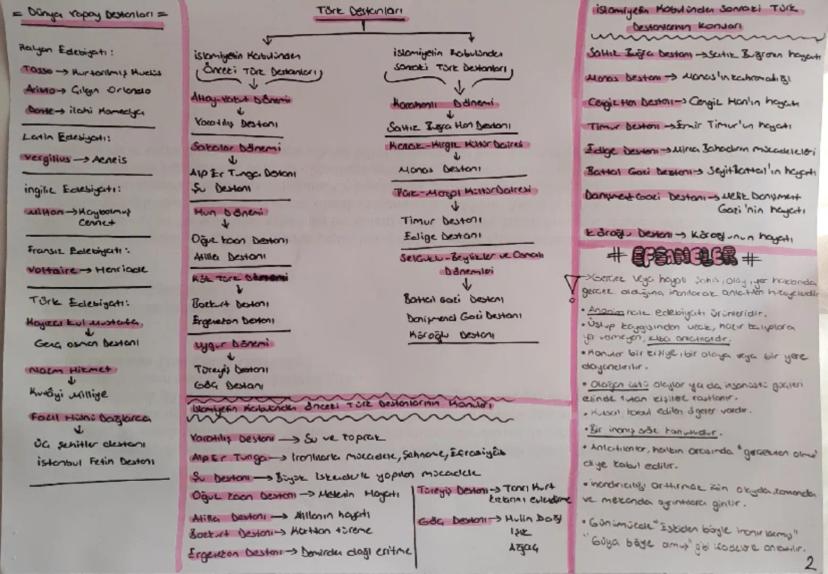 = Dünya Yapay Destanları =
İtalyan Edebiyatı:
Tasso → Kurtarılmış Kudüs
Aristo → Çılgın Orlando
Dante → İlahi Komedya
Latin Edebiyatı:
Vergilius → Aeneis
İngiliz Edebiyatı:
Milton → Kaybolmuş
Cennet
Fransız Edebiyatı:
Voltaire → Henriade
Türk Edebiyatı:
Kayıkçı Kul Mustafa
↓
Genç Osman Destanı
Nazım Hikmet
↓
Kuvâyi Milliye
Fazıl Hüsnü Dağlarca
↓
Üç Şehitler destanı
İstanbul Fetih Destanı
Türk Destanları
İslamiyetin Kabulünden
Önceki Türk Destanları
Altay-Yakut Dönemi
↓
Yaratılış Destanı
Sakalar Dönemi
↓
Alp Er Tunga Destanı
Şu Destanı
Hun Dönemi
↓
Oğuz Kaan Destanı
Atilla Destanı
Kök Türk Dönemi
↓
Bozkurt Destanı
Ergenekon Destanı
Uygur Dönemi
↓
Türeyiş Destanı
Göç Destanı
İslamiyetin Kabulünden
Sonraki Türk Destanları
Karahanlı Dönemi
↓
Saltuk Buğra Han Destanı
Kazak-Kırgız Kültür Dairesi
↓
Manas Destanı
Türk-Moğol Kültür Dairesi
↓
Timur Destanı
Edige Destanı
Selçuklu-Beylikler ve Osmanlı
Dönemleri
↓
Battal Gazi Destanı
Danişmend Gazi Destanı
Köroğlu Destanı
İslamiyetin Kabulünden Önceki Türk Destanlarının Konuları
Yaratılış Destanı → Su ve toprak
Alp Er Tunga → İranlılarla mücadele, Şehname, Efrasiyâb
Şu Destanı → Büyük İskenderle yapılan mücadele
Oğuz Kaan Destanı → Mete'nin Hayatı
Atilla Destanı → Atillanın hayatı
Bozkurt Destanı → Kurttan türeme
Ergenekon Destanı → Demirden dağı eritme
Türeyiş Destanı → Tanrı Kurt
kızlarını evlendirme
Göç Destanı → Hulin Dağı
Işık
Ağaç
İslamiyetin Kabulünden Sonraki Türk
Destanlarının Konuları
Saltuk Buğra Destanı → Saltuk Buğranın hayatı
Manas Destanı → Manas'ın kahramanlığı
Cengiz Han Destanı → Cengiz Han'ın hayatı
Timur Destanı → Emir Timur'un hayatı
Edige Destanı → Mirza Bahadırın mücadeleleri
Battal Gazi Destanı → Seyit Battal'ın hayatı
Danişmend Gazi Destanı → Melik Danişment
Gazi'nin hayatı
Köroğlu Destanı → Köroğlunun hayatı
# EFSANELER #
Gerçek veya hayali şahıs, olay, yer hakkında
gerçek olduğuna inanılarak anlatılan hikayelerdir
• Anonim halk edebiyatı ürünleridir.
• Üslup kaygısından uzak, hazır kalıplara
yer vermeyen, kısa anlatılardır.
• Konular bir kişiye, bir olaya veya bir yere
dayandırılır.
• Olağan üstü olaylar ya da insanüstü güçleri
elinde tutan kişilere rastlanır.
• Kutsal kabul edilen öğeler vardır.
• Bir inanış söz konusudur.
• Anlatılanlar, halkın arasında "gerçekten olmuş"
diye kabul edilir.
• İnandırıcılığı arttırmak için olayda, zamanda
ve mekanda ayrıntılara girilir.
• Günümüzde "Eskiden böyle inanırlarmış"
"Güya böyle olmuş" gibi ifadelerle anlatılır.
2